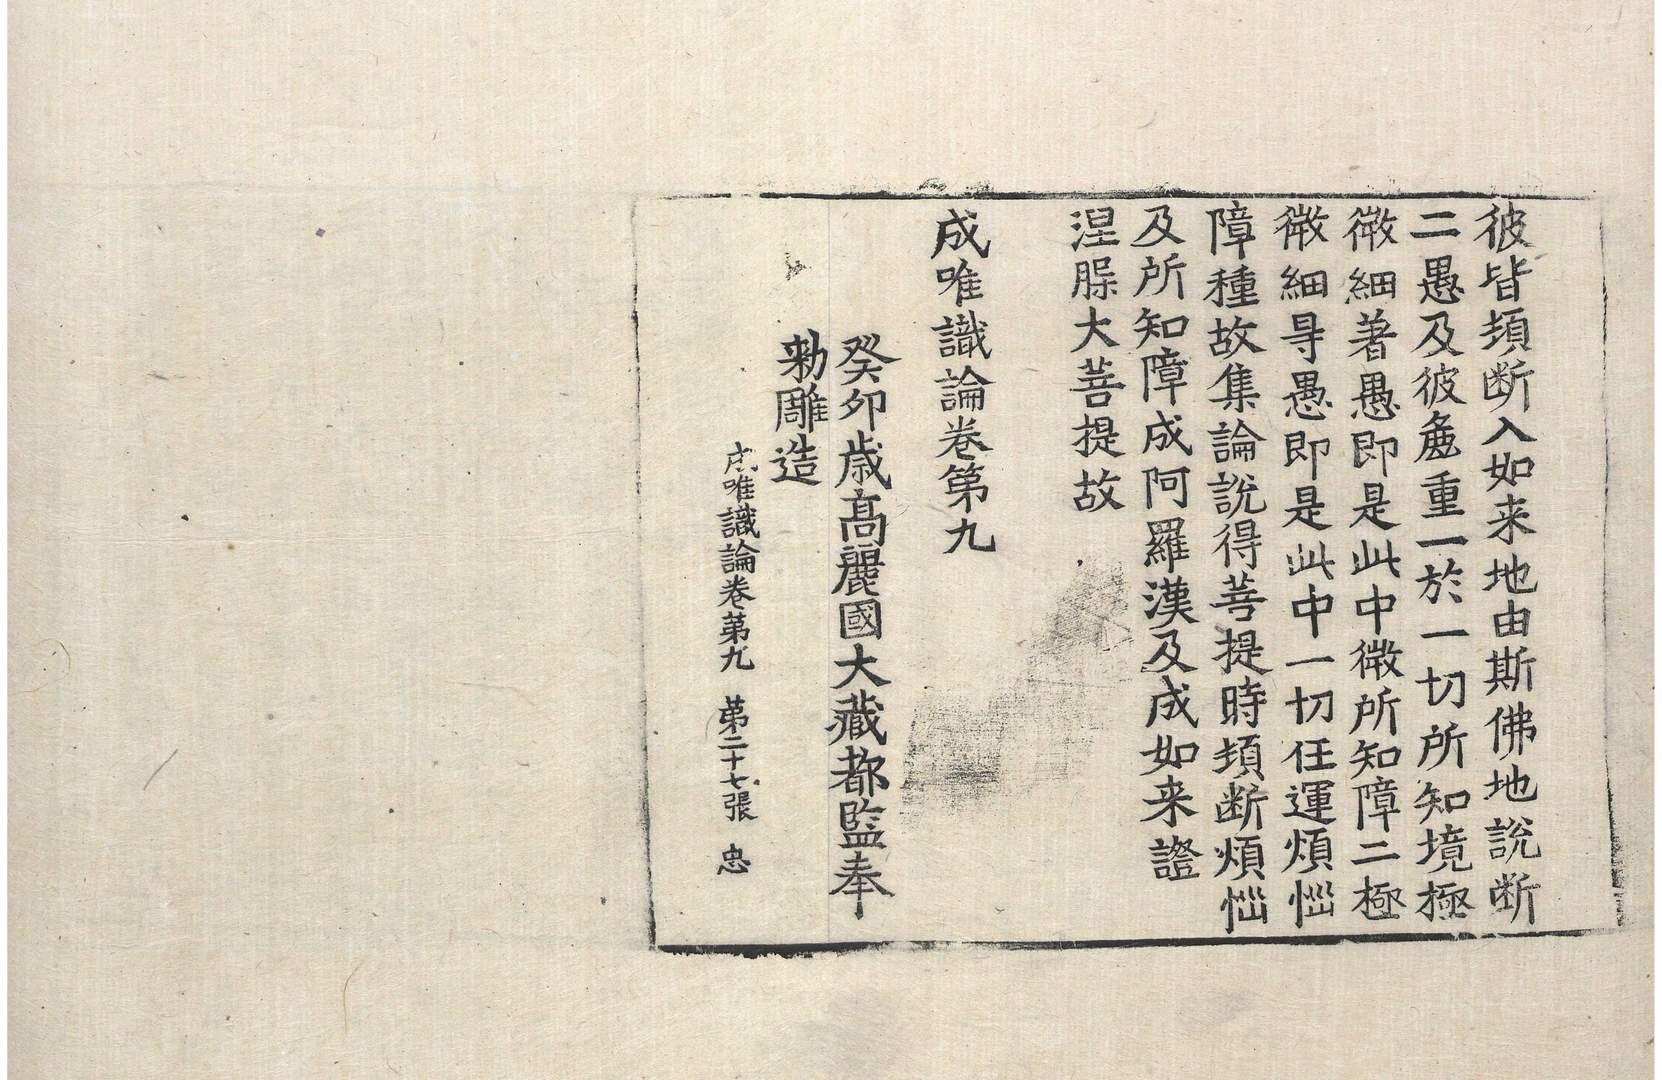 彼皆頓断入如来地由斯佛地說断
二愚及彼麁重一於一切所知境極
微細著愚即是此中微所知障二極
微細㝵愚即是此中一切任運煩惱
障種故集論說得菩提時頓断煩惱
及所知障成阿羅漢及成如来證
涅槃大菩提故
成唯識論卷第九
癸卯歲髙麗國大藏都監奉
勅雕造
成唯識論卷第九 第二十七張 忠